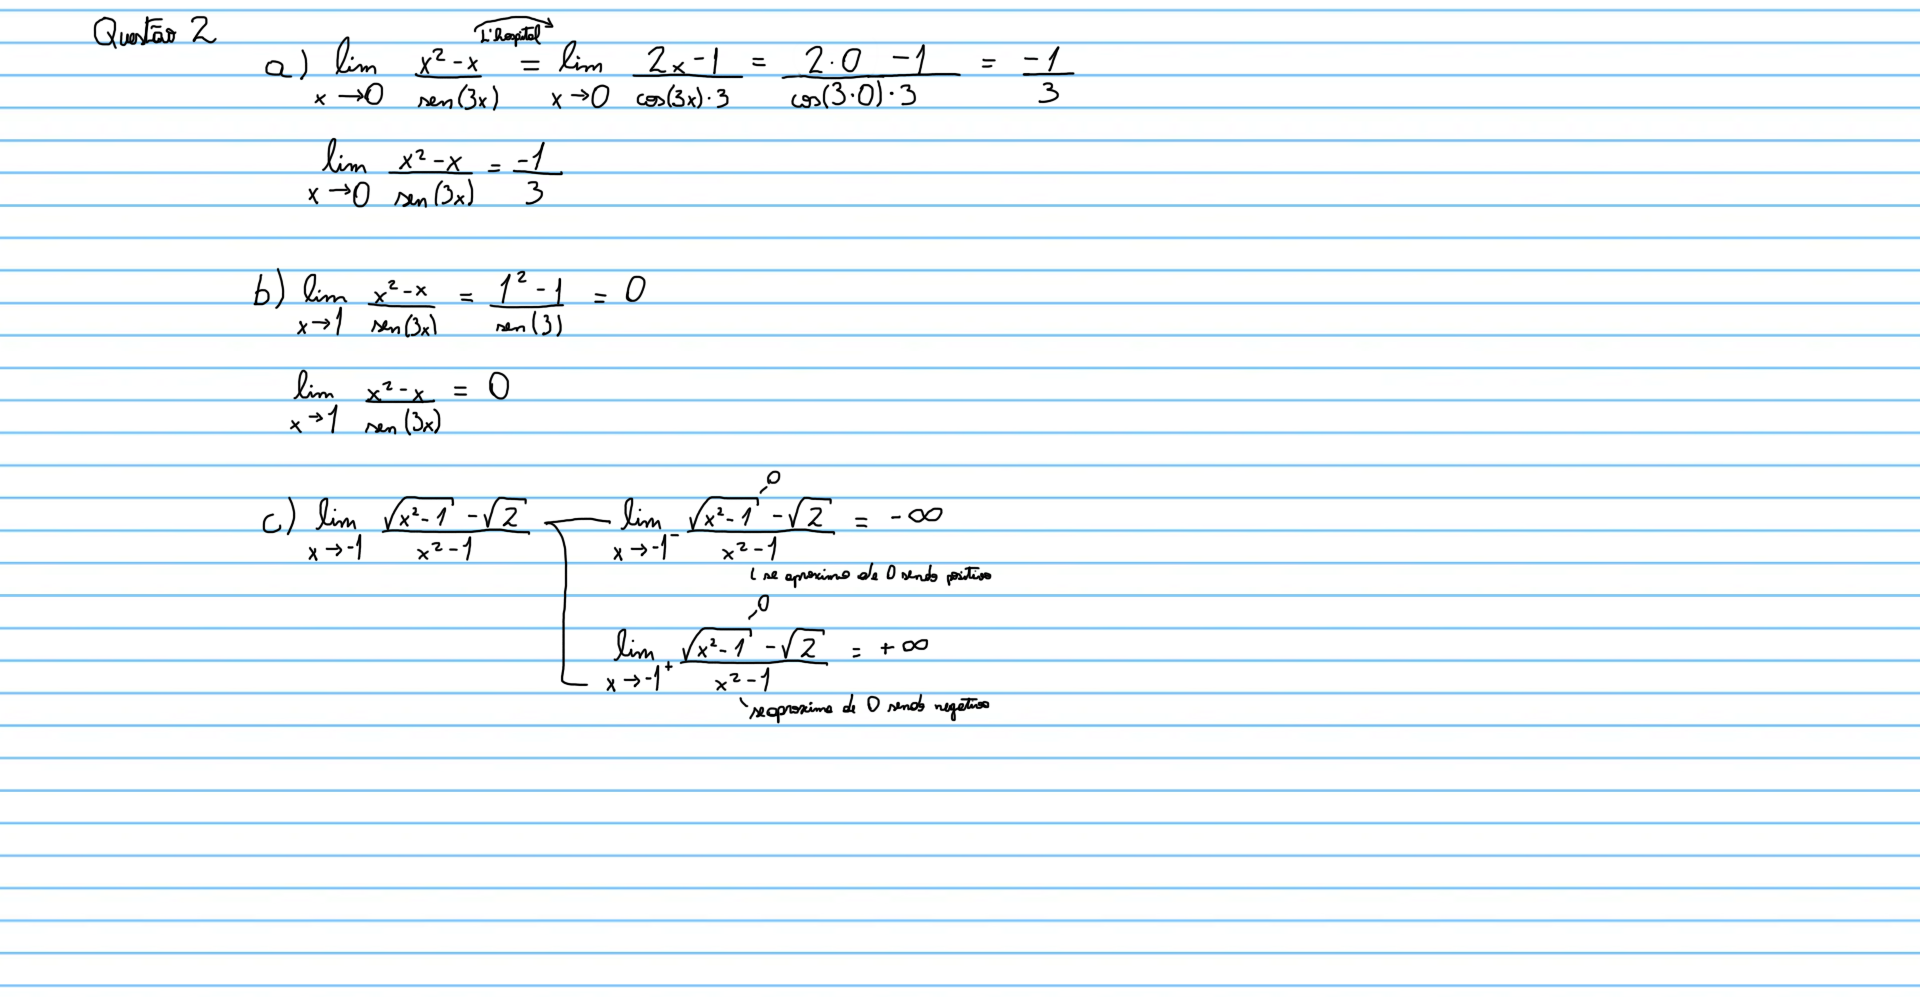 Questão 2
L'hospital
a) lim x→0 (x² - x)/(sen(3x)) = lim x→0 (2x - 1)/(cos(3x)·3) = (2·0 - 1)/(cos(3·0)·3) = -1/3
lim x→0 (x² - x)/(sen(3x)) = -1/3
b) lim x→1 (x² - x)/(sen(3x)) = (1² - 1)/(sen(3)) = 0
lim x→1 (x² - x)/(sen(3x)) = 0
0
c) lim x→-1 (√(x² - 1) - √2)/(x² - 1) lim x→-1⁻ (√(x² - 1) - √2)/(x² - 1) = -∞
se aproxima de 0 sendo positivo
0
lim x→-1⁺ (√(x² - 1) - √2)/(x² - 1) = +∞
se aproxima de 0 sendo negativo